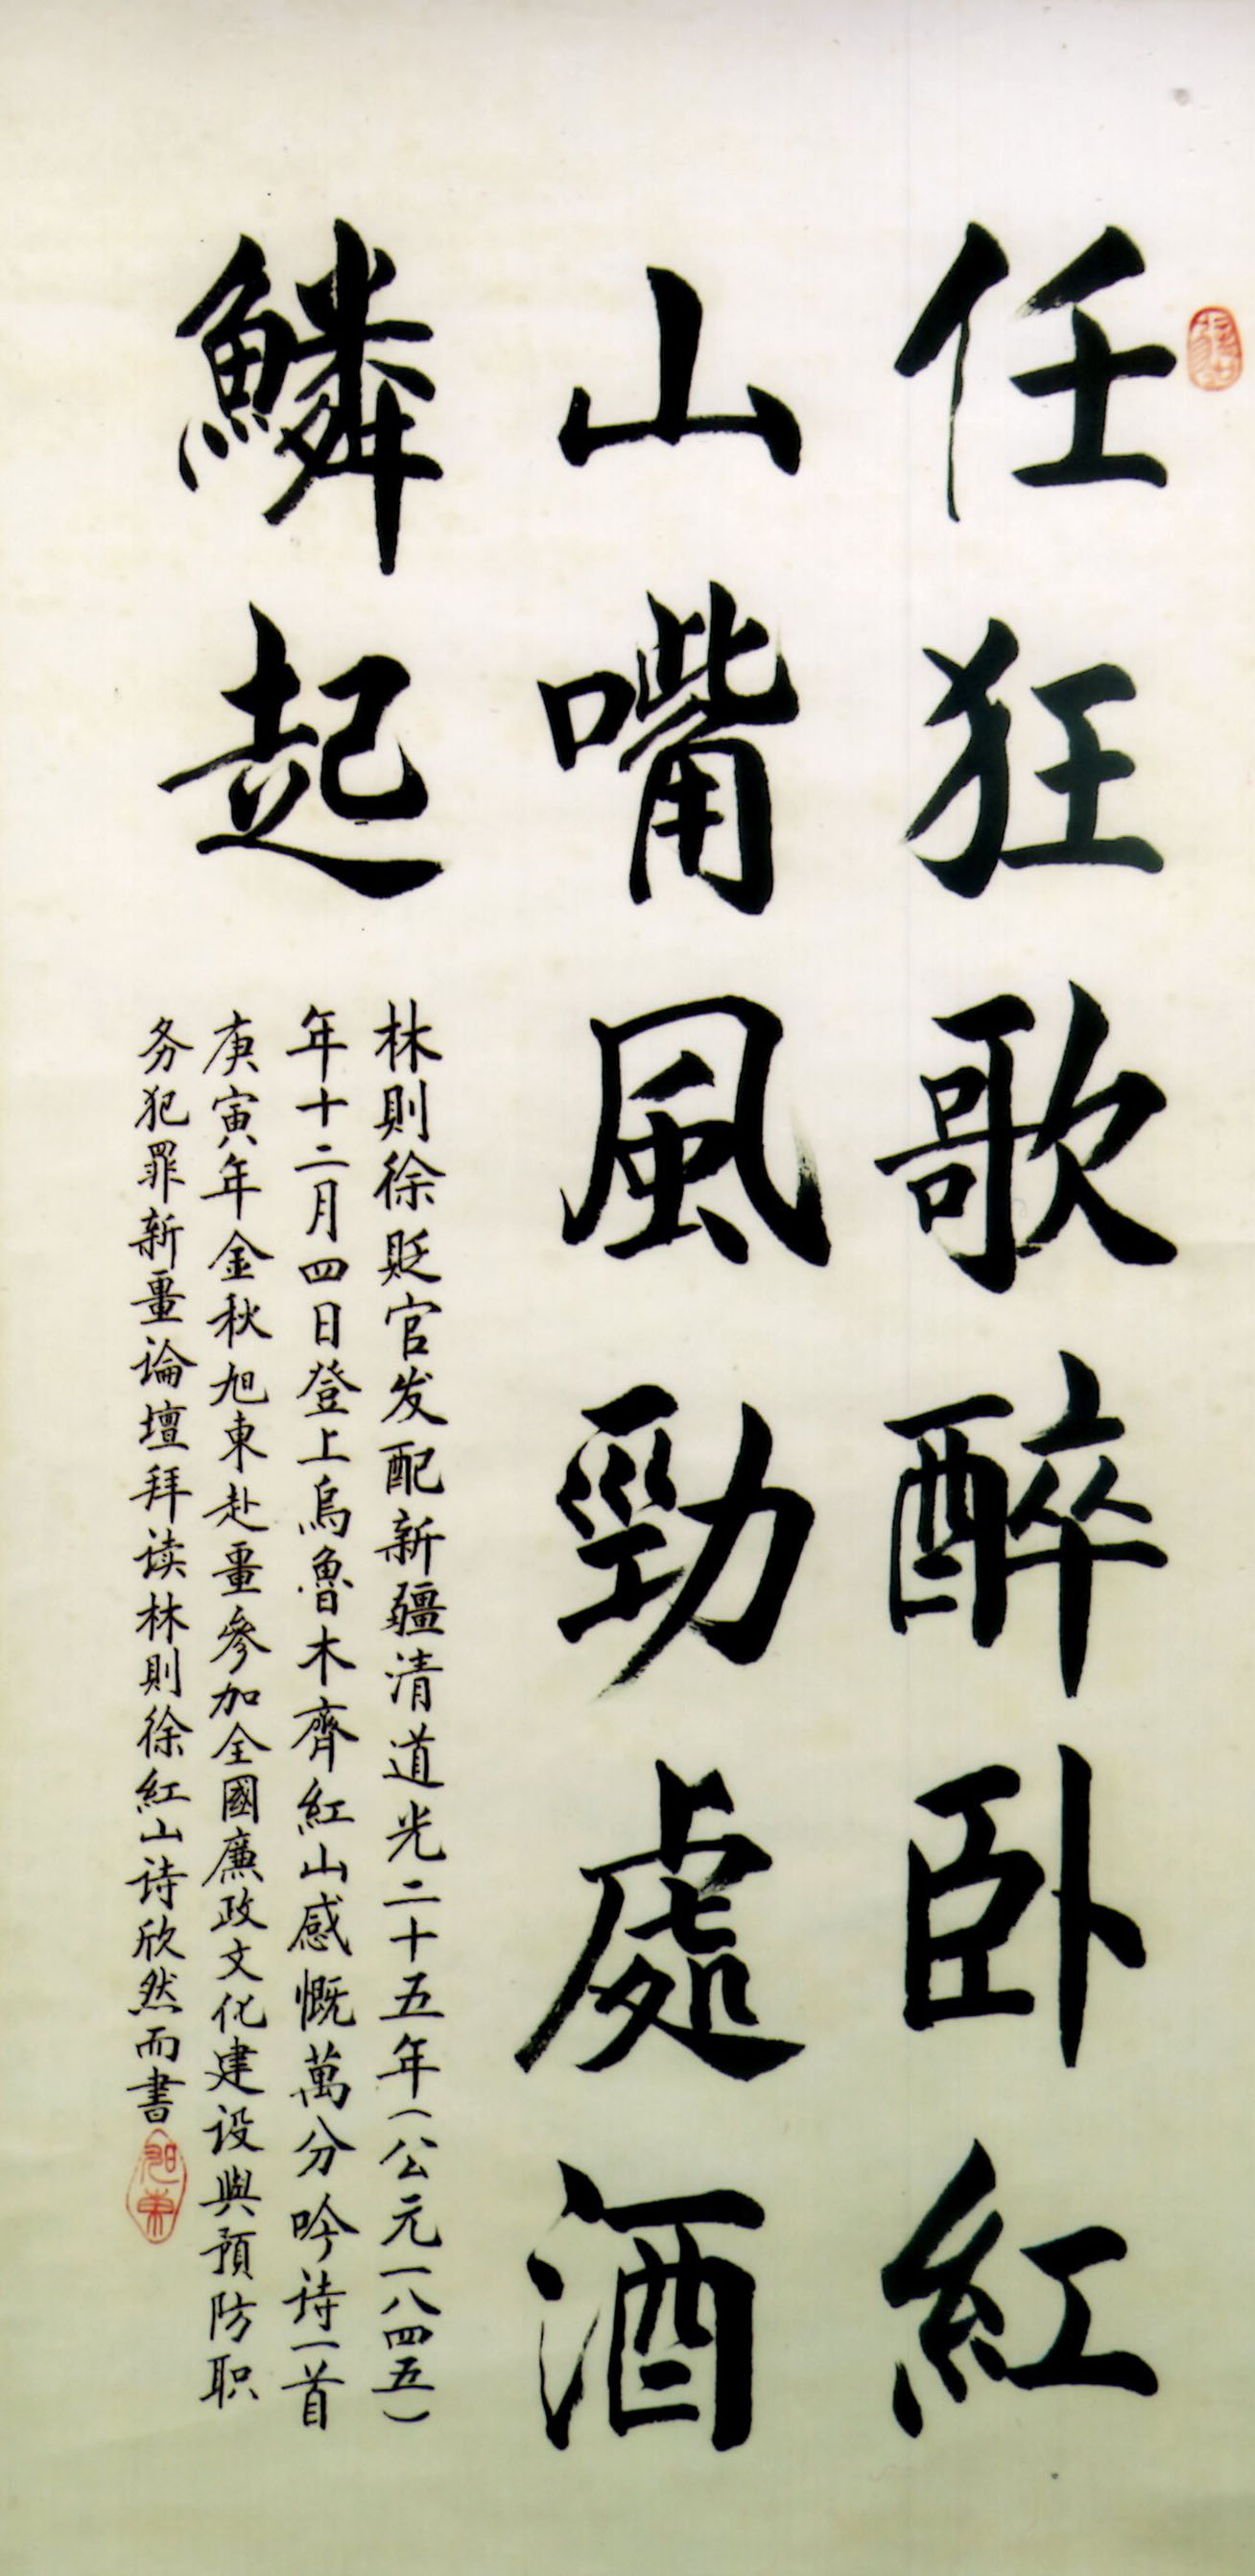 任狂歌醉卧紅
山嘴風勁處酒
鱗起
林則徐貶官发配新疆清道光二十五年(公元一八四五)
年十二月四日登上烏魯木齊紅山感慨萬分吟诗一首
庚寅年金秋旭東赴畺參加全國廉政文化建设與預防职
务犯罪新畺论壇拜读林則徐紅山诗欣然而書
旭東